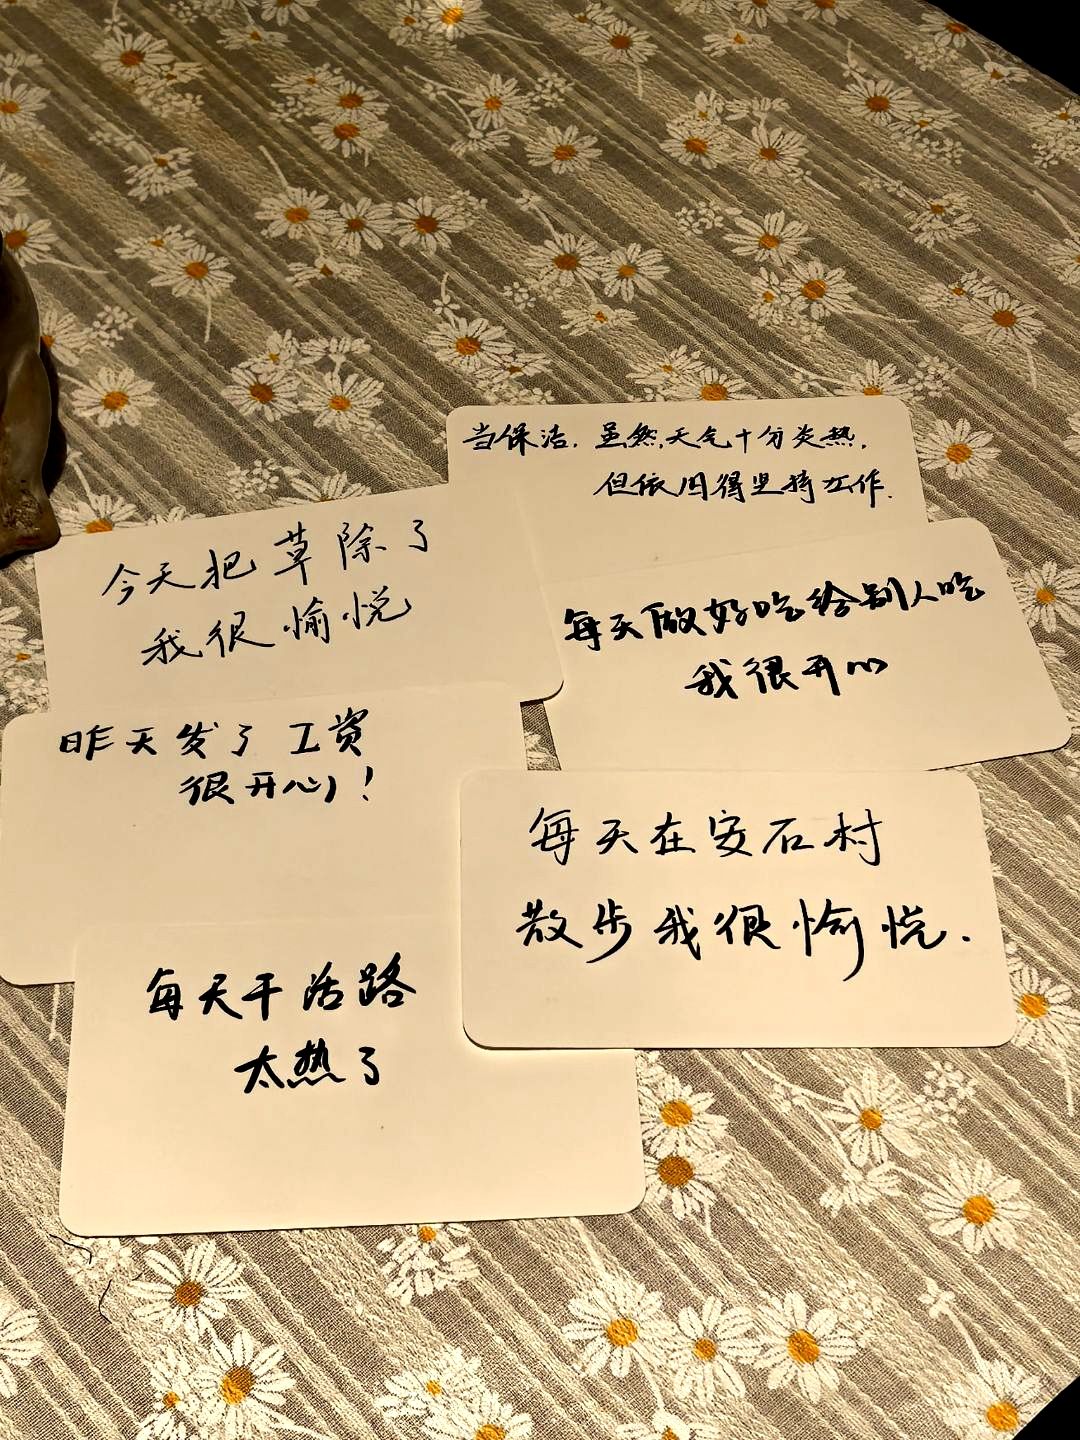 当保洁.虽然天气十分炎热.
但依旧得坚持工作.
今天把草除了
我很愉悦
每天做好吃给别人吃
我很开心
昨天发了工资
很开心！
每天在安石村
散步我很愉悦.
每天干活路
太热了